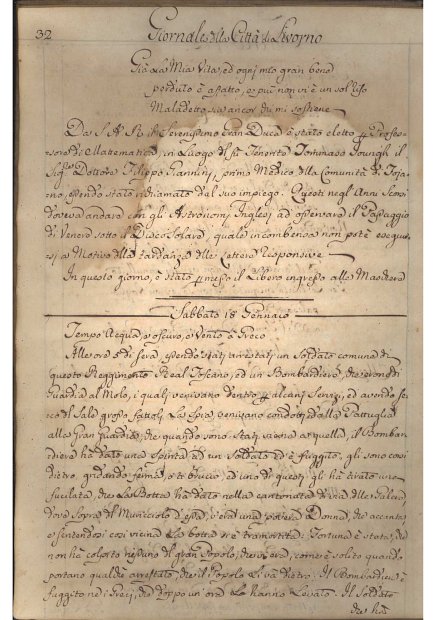 32 Giornale della Città di Livorno
Già la Mia Vita, ed ogni mio gran bene
perduto è affatto, e più non vi è un sol
Maladetto sia ancor chi mi sostiene
Da S. A. R. il Serenissimo Gran Duca è stato eletto per Profes-
sore di Mattematica, in Luogo del Tenente Tommaso Joungh il
Sig. Dottore Filippo Giannini, primo Medico della Comunità di
essendo stato richiamato dal suo impiego. Questi negl' Anni Scorsi
doveva andare con gli Astronomi Inglesi ad osservare il Passaggio
di Venere sotto il Disco Solare, quale incombenza non potè esegui-
si a Motivo della tardanza delle Lettere Responsive
In questo giorno, è stato permesso il Libero ingresso alle Maschere
Sabbato 18 Gennaio
Tempo Acqua, e oscuro, e Vento a Greco
Alle ore di sera, essendo stati arrestati un Soldato comune di
questo Reggimento Real Toscano, ed un Bombardiere, che erano di
Guardia al Molo, i quali venivano dentro per alcuni Servizi, ed avendo
di Sale grosso fattoli La spia, venivano condotti dalla Pattuglia
alla Gran Guardia, che quando sono stati vicino a quella, il Bomban-
diere ha dato una spinta ad un Soldato ed è fuggito, gli sono corsi
dietro, gridando ferma, o ti brucio, ed uno di questi gli ha tirato una
fucilata, che La Botta ha dato nella cantonata di via delle
dove sopra al Muricciolo d'essa, v'era una povera Donna, che accanto
e sentendosi così vicina La botta si è tramortita: Fortuna è stata, che
non ha colpito nessuno di gran Popolo, che vi era, come è solito quando
portano qualche arrestato, che il Popolo Li và dietro. Il Bombardiere è
fuggito ne i Greci, che doppo un' ora Lo hanno Levato. Il Soldato
che ha